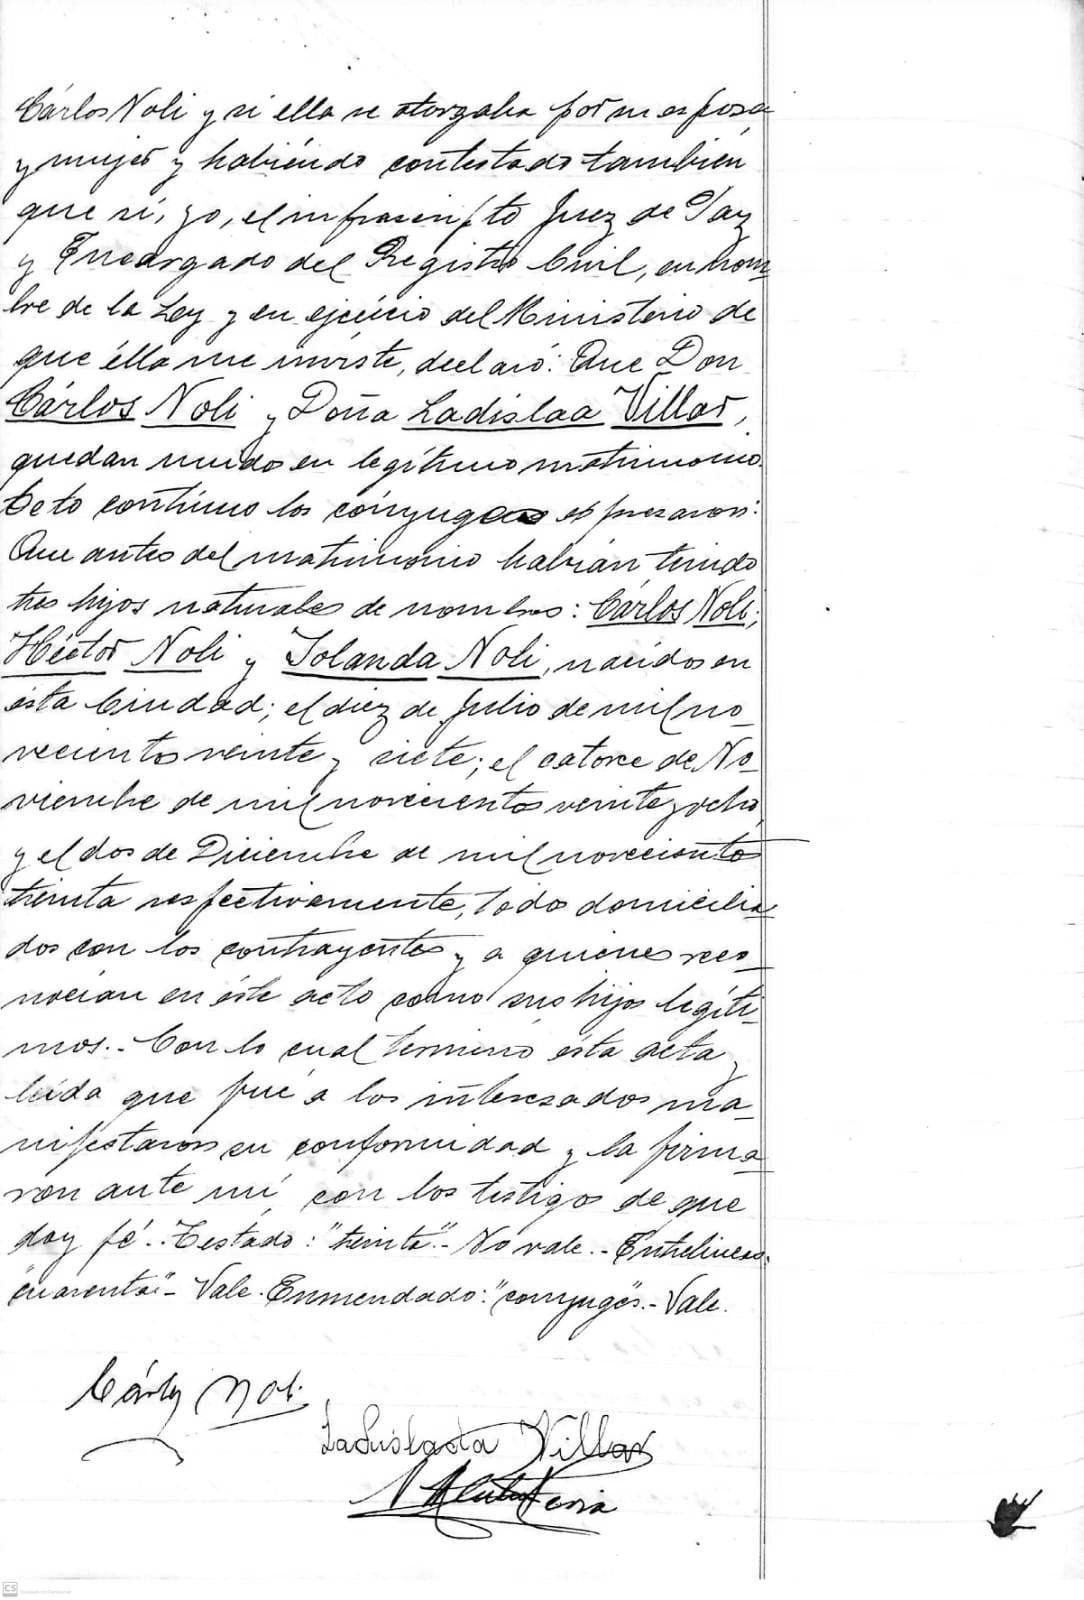 Cárlos Noli y si ella se otorgaba por su esposa
y mujer y habiéndo contestado también
que sí, yo, el infrascripto Juez de Paz
y Encargado del Registro Civil, en nom
bre de la Ley y en ejercicio del Ministerio de
que élla me inviste, declaró: Que Don
Cárlos Noli y Doña Ladislaa Villar,
quedan unidos en legítimo matrimonio.
Acto contínuo los cónyuges expresaron:
Que antes del matrimonio habían tenido
tres hijos naturales de nombres: Cárlos Noli;
Héctor Noli y Iolanda Noli, nacidos en
ésta Ciudad; el diez de Julio de mil no_
vecientos veinte y siete; el catorce de No_
viembre de mil novecientos veinte y ocho,
y el dos de Diciembre de mil novecientos
treinta respectivamente, todo domicilia
dos con los contrayentes y a quienes reco_
nocian en éste acto como sus hijos legíti_
mos.- Con lo cual terminó ésta acta y
leída que fué a los interesados ma_
nifestaron su conformidad y la firma_
ron ante mí, con los testigos de que
doy fé.- Testado: "treinta".- No vale.- Entrelineas:
"cuarenta"- Vale. Enmendado: "conyuges".- Vale.
Cárlos Noli
Ladislada Villar
CS